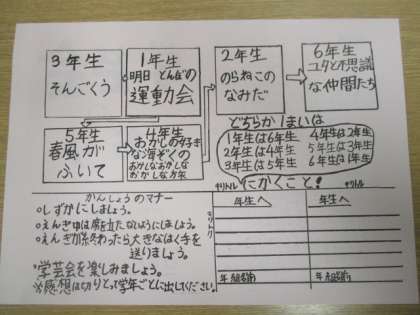 3年生
そんごくう
1年生
明日とんぼの
運動会
2年生
のらねこの
なみだ
6年生
ユタと不思議
な仲間たち
5年生
春風が
ふいて
4年生
おかしの好き
な海ぞくの
おかしなおかしな
おかしな
どちらか1まいは
1年生は6年生
2年生は4年生
3年生は5年生
4年生は2年生
5年生は3年生
6年生は1年生
にかくこと!
かんしょうのマナー
○しずかにしましょう。
○えんぎ中は席を立たないようにしましょう。
○えんぎが終わったら大きなはく手を
送りましょう。
○学芸会を楽しみましょう。
※感想は切りとって学年ごとに出してください。
キリトル
キリトル
キリトル
年生へ
年生へ
年 組 名前
年 組 名前